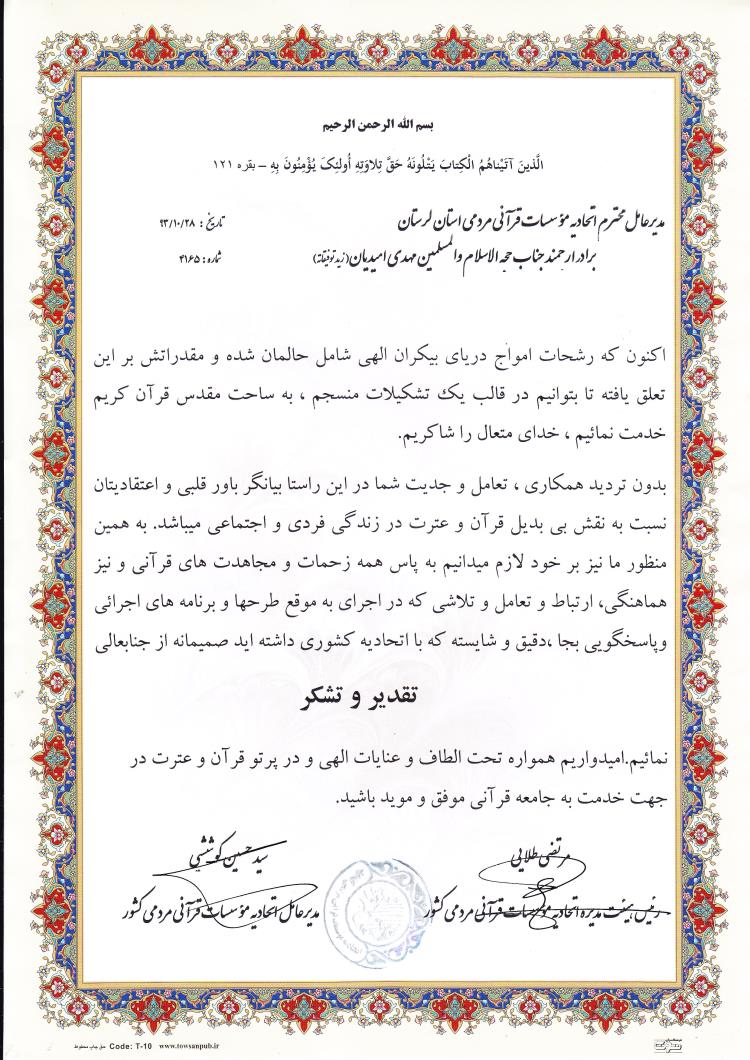 بسم الله الرحمن الرحیم
الَّذینَ آتَیْناهُمُ الْکِتابَ یَتْلُونَهُ حَقَّ تِلاوَتِهِ أُولئِکَ یُؤْمِنُونَ بِهِ – بقره ۱۲۱
مدیرعامل محترم اتحادیه مؤسسات قرآنی مردمی استان لرستان
تاریخ : ۹۳/۱۰/۲۸
برادر ارجمند جناب حجه الاسلام والمسلمین مهدی امیدیان(زید توفیقاته)
شماره : ۴۱۶۵
اکنون که رشحات امواج دریای بیکران الهی شامل حالمان شده و مقدراتش بر این
تعلق یافته تا بتوانیم در قالب یک تشکیلات منسجم ، به ساحت مقدس قرآن کریم
خدمت نمائیم ، خدای متعال را شاکریم.
بدون تردید همکاری ، تعامل و جدیت شما در این راستا بیانگر باور قلبی و اعتقادیتان
نسبت به نقش بی بدیل قرآن و عترت در زندگی فردی و اجتماعی میباشد. به همین
منظور ما نیز بر خود لازم میدانیم به پاس همه زحمات و مجاهدت های قرآنی و نیز
هماهنگی، ارتباط و تعامل و تلاشی که در اجرای به موقع طرحها و برنامه های اجرائی
وپاسخگویی بجا ،دقیق و شایسته که با اتحادیه کشوری داشته اید صمیمانه از جنابعالی
تقدیر و تشکر
نمائیم.امیدواریم همواره تحت الطاف و عنایات الهی و در پرتو قرآن و عترت در
جهت خدمت به جامعه قرآنی موفق و موید باشید.
مرتضی طلایی
سید حسین کوششی
رئیس هیئت مدیره اتحادیه مؤسسات قرآنی مردمی کشور
مدیرعامل اتحادیه مؤسسات قرآنی مردمی کشور
حق چاپ محفوظ Code: T-10 www.towsanpub.ir